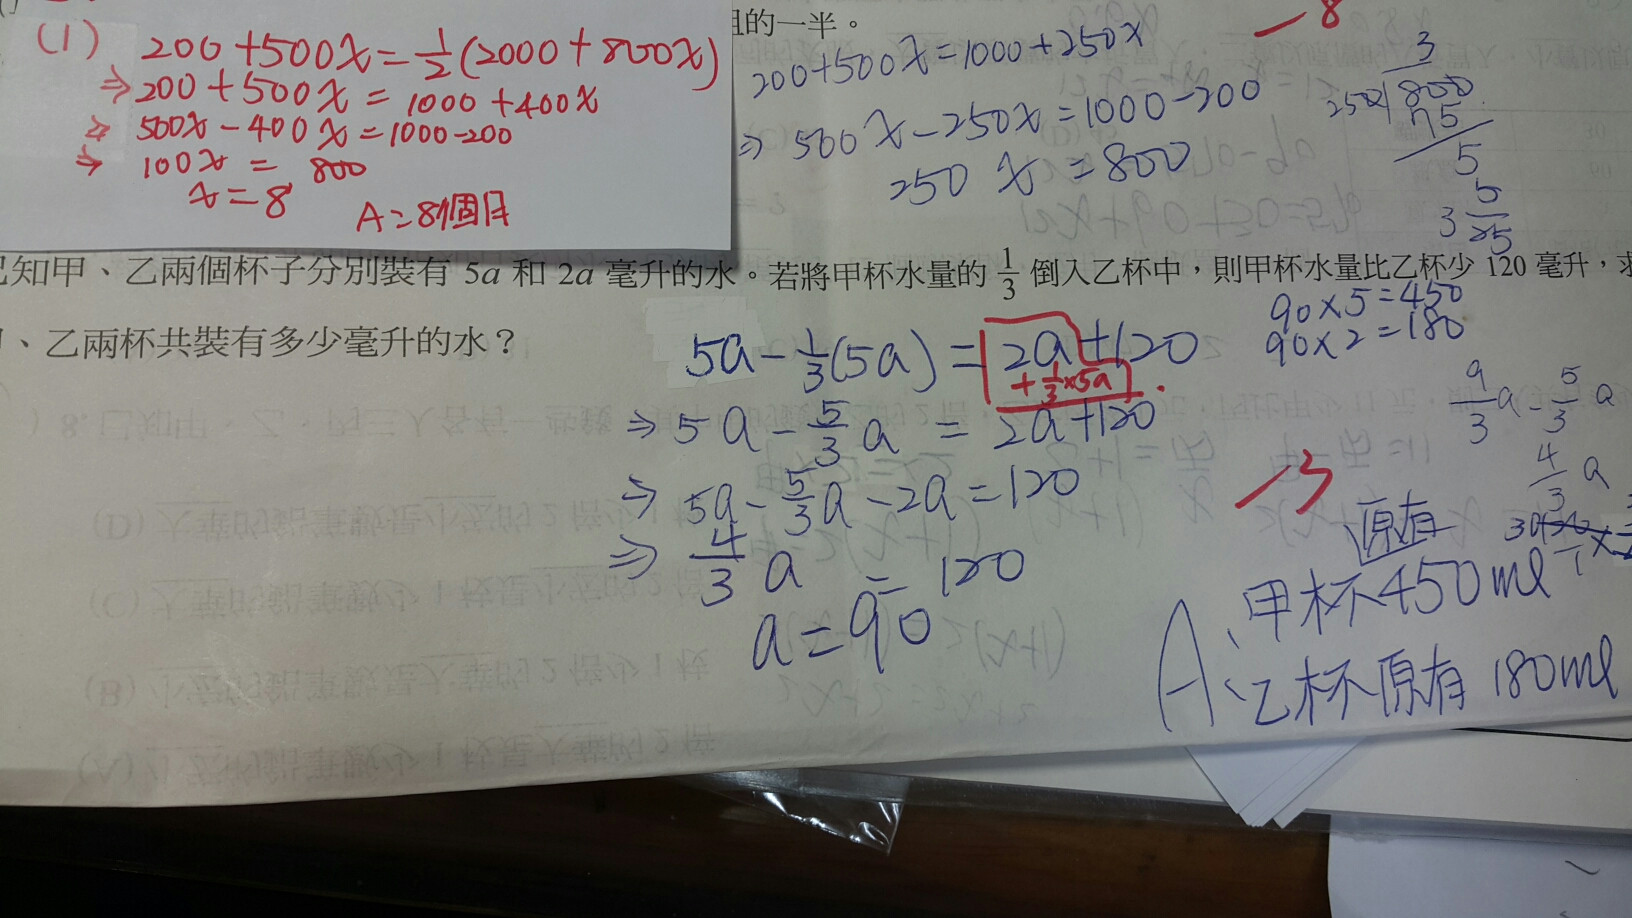 (1) 200+500x=½(2000+800x)
⇒200+500x=1000+400x
⇒500x-400x=1000-200
⇒100x=800
x=8
A=8個月
組的一半。
-8
200+500x=1000+250x
⇒500x-250x=1000-200
250x=800
3
250
800
75
5
3 5/25
已知甲、乙兩個杯子分別裝有5a和2a毫升的水。若將甲杯水量的1/3倒入乙杯中,則甲杯水量比乙杯少120毫升,求
甲、乙兩杯共裝有多少毫升的水?
90×5=450
90×2=180
5a-1/3(5a)=2a+120
+1/3×5a
⇒5a-5/3a=2a+120
9/3a-5/3a
4/3a
⇒5a-5/3a-2a=120
-3
⇒4/3a=120
a=90
原有
A、甲杯450ml
乙杯原有180ml